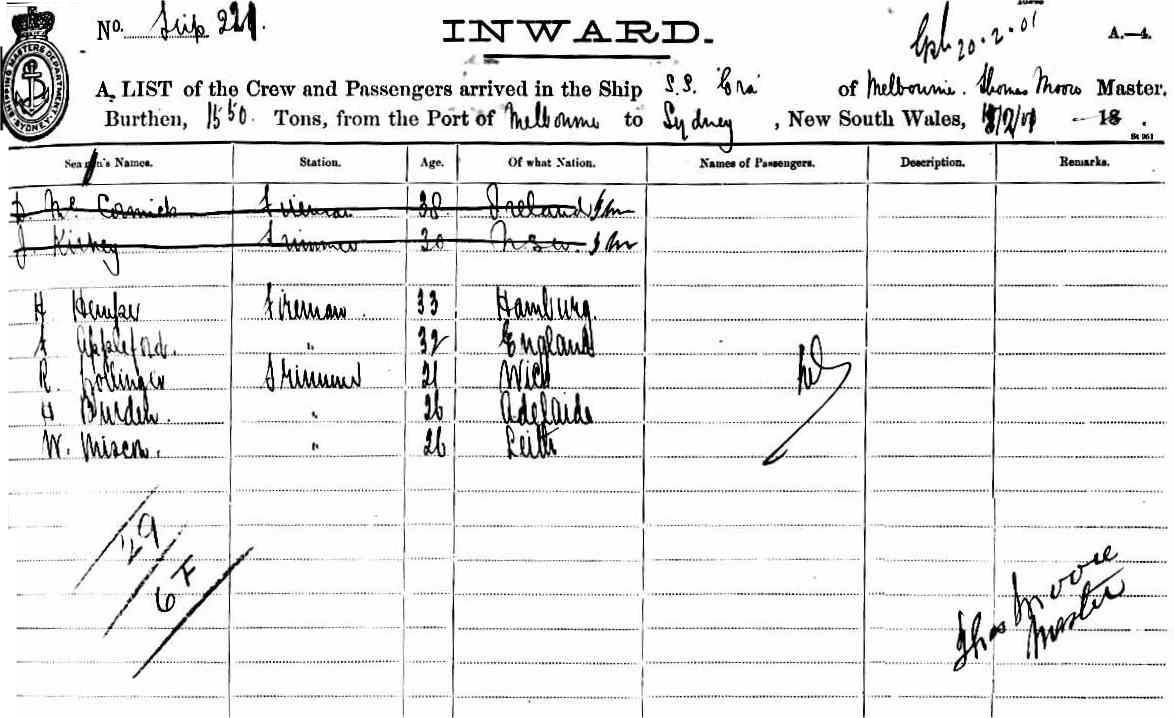 No. Slip 221.
INWARD.
20.2.01
A.—4.
SHIPPING MASTERS DEPARTMENT SYDNEY
A LIST of the Crew and Passengers arrived in the Ship S.S. Era of Melbourne. Thomas Moore Master.
Burthen, 1550 Tons, from the Port of Melbourne to Sydney, New South Wales, /2/01 18 .
St 961
Seaman's Names. Station. Age. Of what Nation. Names of Passengers. Description. Remarks.
Mc Cormick Fireman 38 Ireland
J. Trimmer 30 N.S.W.
H Fireman. 33 Hamburg.
Appleford. " 32 England
R. Trimmer 21 Wick
H Burden. " 26 Adelaide
W. " 26 Leith
Nil
29
6 F
Thos Moore
Master